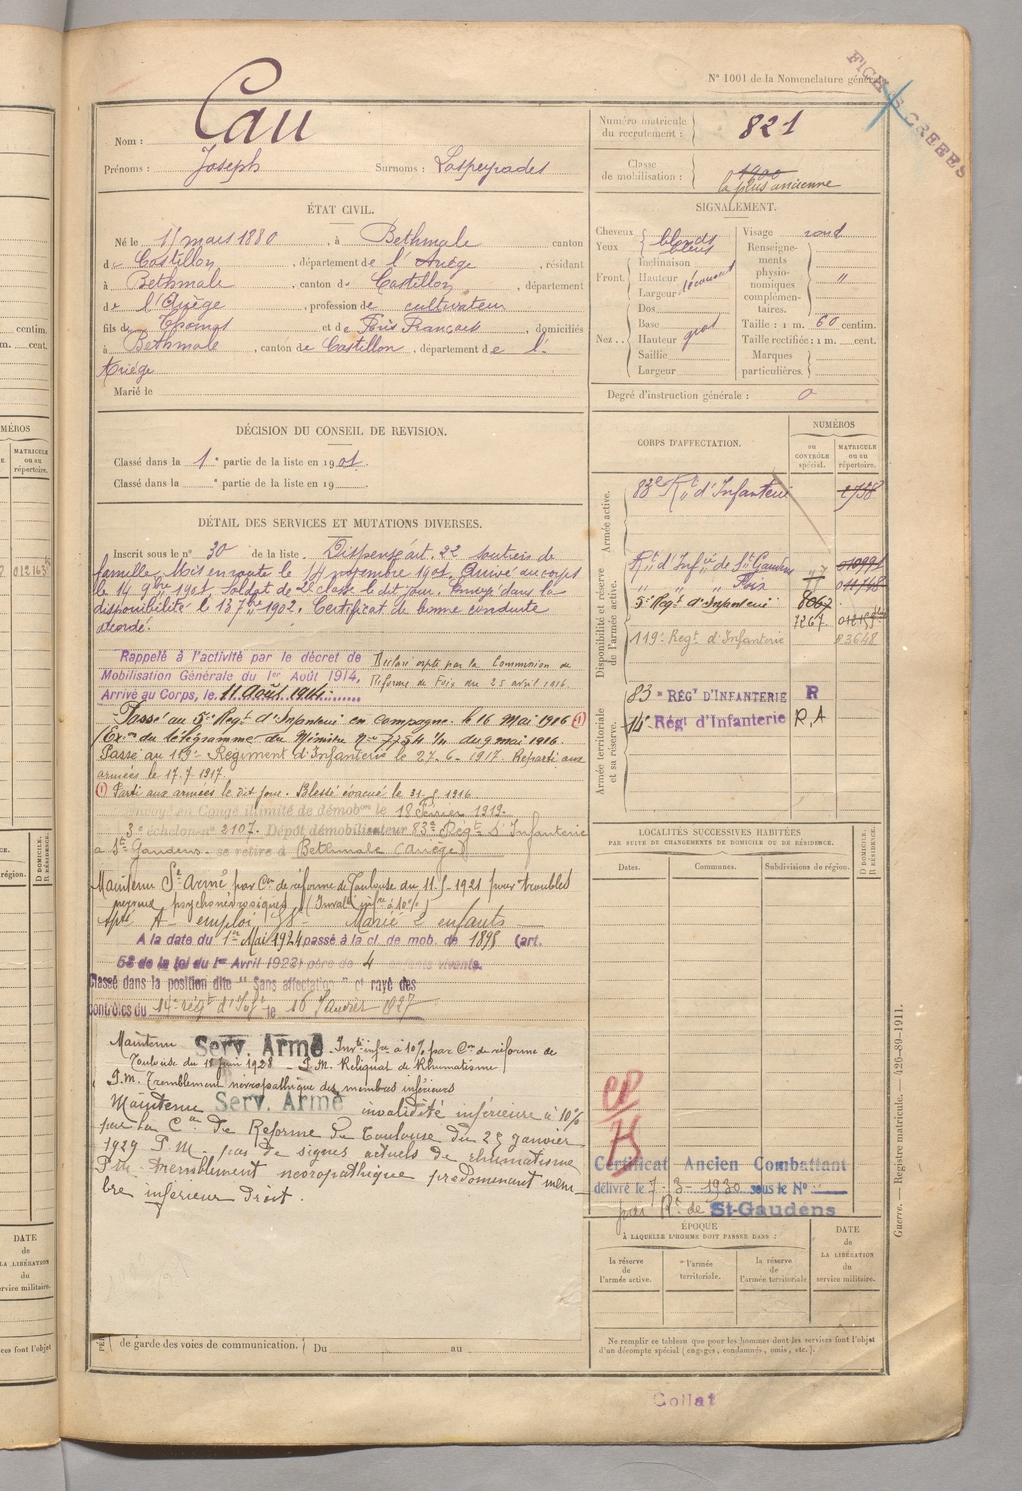 N° 1001 de la Nomenclature générale
FICHES CREEES
Nom : Cau
Prénoms : Joseph Surnoms : Laspeyrades
Numéro matricule du recrutement : 821
Classe de mobilisation : 1900
la plus ancienne
ÉTAT CIVIL.
Né le 11 mars 1880, à Bethmale canton
de Castillon, département de l'Ariège, résidant
à Bethmale, canton de Castillon, département
de l'Ariège, profession de cultivateur
fils de Thomas et de Françoise, domiciliés
à Bethmale, canton de Castillon, département de l'
Ariège
Marié le
SIGNALEMENT.
Cheveux blonds
Yeux bleus
Front. Inclinaison
Hauteur
Largeur
Nez. Dos
Base
Hauteur gros
Saillie
Largeur
Visage rond
Renseignements physionomiques complémentaires. "
Taille : 1 m. 60 centim.
Taille rectifiée : 1 m. cent.
Marques particulières.
Degré d'instruction générale : 0
DÉCISION DU CONSEIL DE REVISION.
Classé dans la 1e partie de la liste en 1901.
Classé dans la e partie de la liste en 19
DÉTAIL DES SERVICES ET MUTATIONS DIVERSES.
Inscrit sous le n° 30 de la liste. Dispensé art. 22 soutien de
famille. Mis en route le 14 novembre 1901. Arrivé au corps
le 14 9bre 1901, Soldat de 2e classe le dit jour. Envoyé dans la
disponibilité le 13 7bre 1902. Certificat de bonne conduite
accordé.
Rappelé à l'activité par le décret de
Mobilisation Générale du 1er Août 1914,
Arrivé au Corps, le 11 Août 1914
Déclaré apte par la Commission de
Réforme de Foix du 25 avril 1916.
Passé au 5e Régt d'Infanterie en campagne. le 16 Mai 1916 (1)
(Exon du télégramme du Ministre No 7754 1/1 du 9 mai 1916.
Passé au 119e Régiment d'Infanterie le 27-6-1917. Réparti aux
armées le 17.7.1917.
(1) Parti aux armées le dit jour. Blessé évacué le
envoyé en Congé illimité de démobon le 18 Février 1919.
3e échelon no 2107. Dépôt démobilisateur 83e Régt d'Infanterie
à St Gaudens. se retire à Bethmale (Ariège)
Maintenu Sce Armé par Con de réforme de Toulouse du 1921 pour troubles
psychonévrosiques (Invalté infre à 10%)
apte A emploi Marié 2 enfants
A la date du 1er Mai 1924 passé à la cl. de mob. de 1895 (art.
58 de la loi du 1er Avril 1923) père de 4 enfants vivants.
Classé dans la position dite "Sans affectation" et rayé des
contrôles du 14e régt d'Inft le 16 Janvier 1927
Maintenu Serv. Armé Invté infre à 10% par Con de réforme de
Toulouse du 18 Juin 1928 - P.M. Reliquat de Rhumatisme
P.M. Tremblement névropathique des membres inférieurs
Maintenu Serv. Armé invalidité inférieure à 10%
par la Con de Réforme de Toulouse du 25 Janvier
1929 P.M. pas de signes actuels de rhumatisme
Ptu tremblement névropathique prédominant mem-
bre inférieur droit.
de garde des voies de communication. Du au
CORPS D'AFFECTATION.
NUMÉROS
au contrôle spécial.
MATRICULE ou au répertoire.
Armée active.
83e Rt d'Infanterie 2758
Disponibilité et réserve de l'armée active.
Rt d'Infie de St Gaudens 010991
" " " Foix 011748
5e Régt d'Infanterie 8067
7267
119e Régt d'Infanterie 23648
Armée territoriale et sa réserve.
83e RÉGt D'INFANTERIE R
14e Régt d'Infanterie R.A
LOCALITÉS SUCCESSIVES HABITÉES
PAR SUITE DE CHANGEMENTS DE DOMICILE OU DE RÉSIDENCE.
Dates. Communes. Subdivisions de région.
D DOMICILE. R RÉSIDENCE.
Certificat Ancien Combattant
délivré le 7-3-1930 sous le N°
par Rt de St-Gaudens
ÉPOQUE
À LAQUELLE L'HOMME DOIT PASSER DANS :
la réserve de l'armée active.
l'armée territoriale.
la réserve de l'armée territoriale
DATE de LA LIBÉRATION du service militaire.
Ne remplir ce tableau que pour les hommes dont les services font l'objet
d'un décompte spécial (engagés, condamnés, omis, etc.).
Guerre. — Registre matricule. — 426-89-1911.
Collat
NUMÉROS
MATRICULE ou au répertoire.
012163
centim.
m. cent.
D DOMICILE. R RÉSIDENCE.
région.
DATE
de
LA LIBÉRATION
du
service militaire.
ces font l'objet